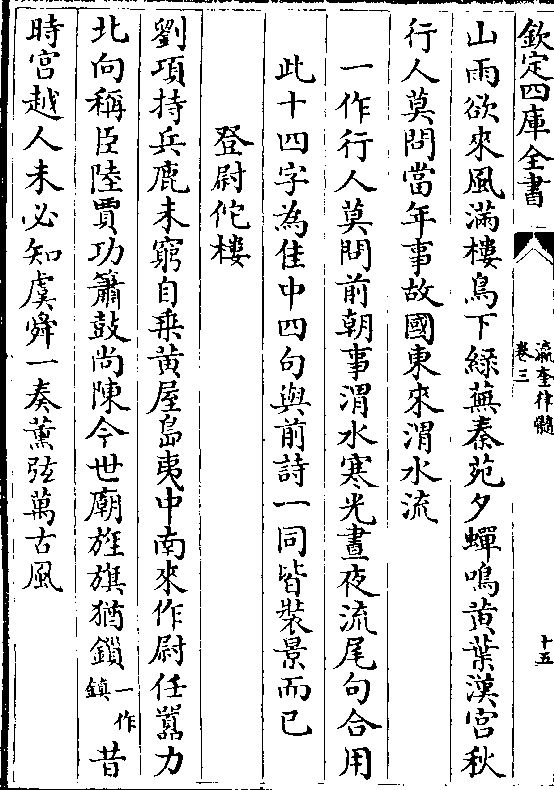 欽定四庫全書
瀛奎律髓
卷三
十五
山雨欲來風滿樓鳥下綠蕪秦苑夕蟬鳴黄葉漢宫秋
行人莫問當年事故國東來渭水流
一作行人莫問前朝事渭水寒光晝夜流尾句合用
此十四字為佳中四句與前詩一同皆裝景而已
登尉佗樓
劉項持兵鹿未窮自乗黄屋島夷中南來作尉任囂力
北向稱臣陸賈功簫鼓尚陳今世廟旌旗猶鎖一作鎮昔
時宫越人未必知虞舜一奏薫弦萬古風